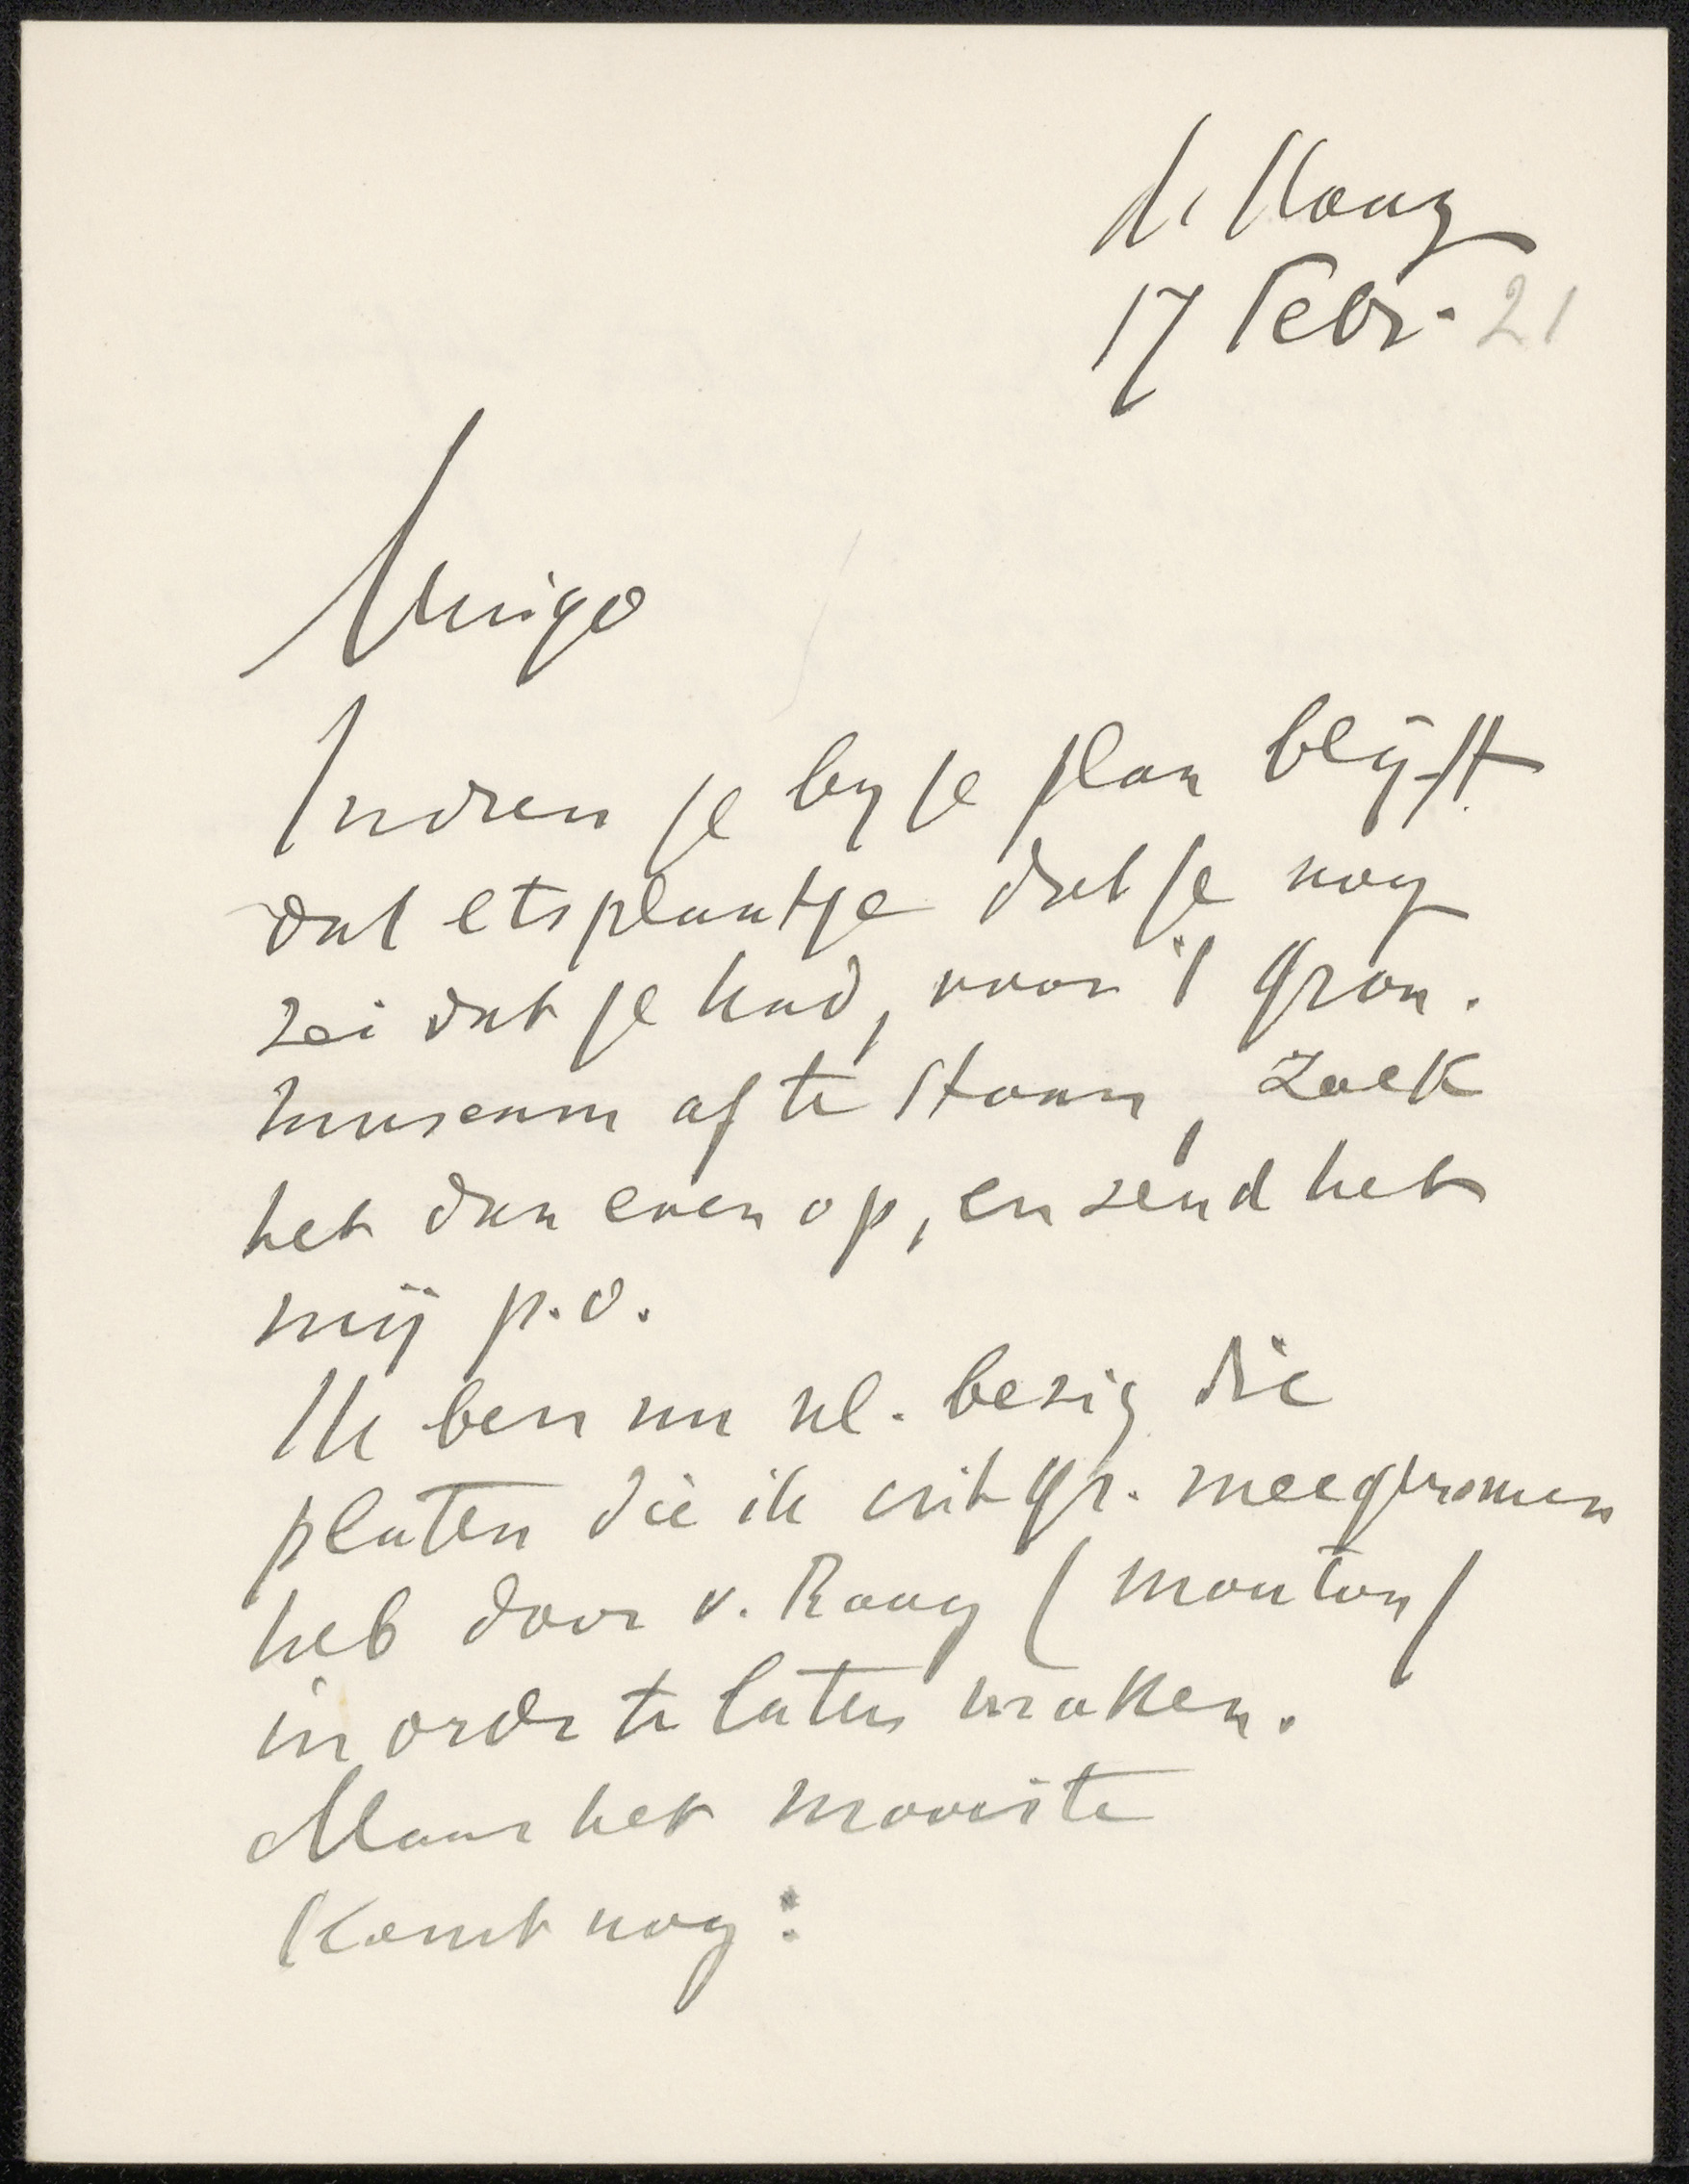 de Haag
17 Febr. 21
Amigo
Indien je by je plan blijft
dat etsplaatje dat je nog
zei dat je had, voor 't Gron.
museum af te staan, zoek
het dan even op, en zend het
mij p.o.
Ik ben nu nl. bezig die
platen die ik uit Gr. meegenomen
heb door v. Raay (Mouton)
in orde te laten maken.
Maar het mooiste
komt nog: